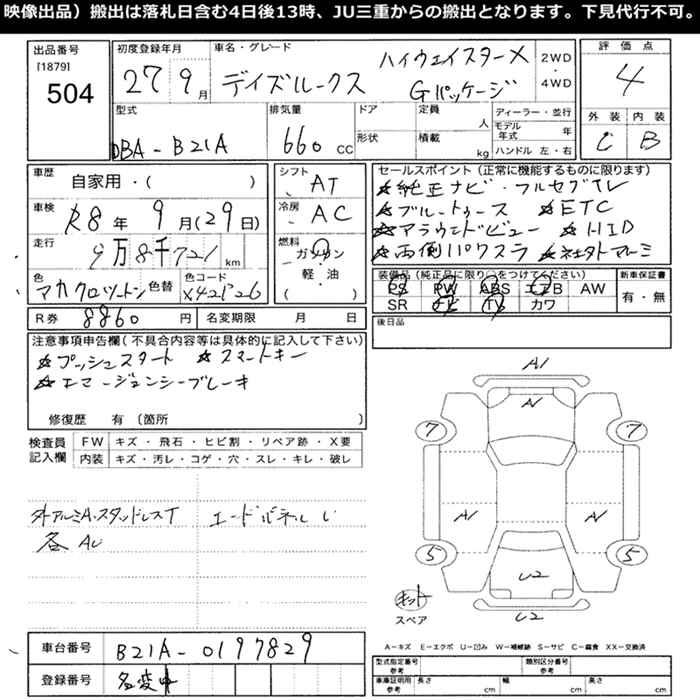 映像出品）搬出は落札日含む4日後13時、JU三重からの搬出となります。下見代行不可。
出品番号
[1879]
504
初度登録年月
27 9月
車名・グレード
デイズルークス
ハイウェイスターX
Gパッケージ
2WD
・
4WD
評価点
4
外装 内装
C B
型式
DBA-B21A
排気量
660 CC
ドア
形状
定員
人
積載
kg
ディーラー・並行
モデル年式 年
ハンドル 左・右
車歴
自家用・( )
車検
R8年 9月(29日)
走行
9万8千721 km
色
色替
色コード
シフト
AT
冷房
AC
燃料
ガソリン
軽・油
( )
セールスポイント（正常に機能するものに限ります）
★純正ナビ・フルセグTV
★ブルートゥース ★ETC
★アラウンドビュー ★HID
★両側パワスラ
装備品（純正品に限り○をつけてください）
PS PW ABS エアB AW
SR ナビ TV カワ
新車保証書
有・無
後日品
R券 8860円
名変期限 月 日
注意事項申告欄（不具合内容等は具体的に記入して下さい）
★プッシュスタート ★スマートキー
★エマージェンシーブレーキ
修復歴 有（箇所 ）
検査員
記入欄
FW キズ・飛石・ヒビ割・リペア跡・X要
内装 キズ・汚レ・コゲ・穴・スレ・キレ・破レ
外アルミA・スタッドレスT
各AU
A1
A1
7
7
A1
A1
5
5
U2
U2
キット
スペア
A－キズ E－エクボ U－凹み W－補修跡 S－サビ C－腐食 XX－交換済
車台番号 B21A-0197829
登録番号 名変中
型式指定番号
参考
類別区分番号
参考
車庫証明用
参考
長さ cm
幅 cm
高さ cm